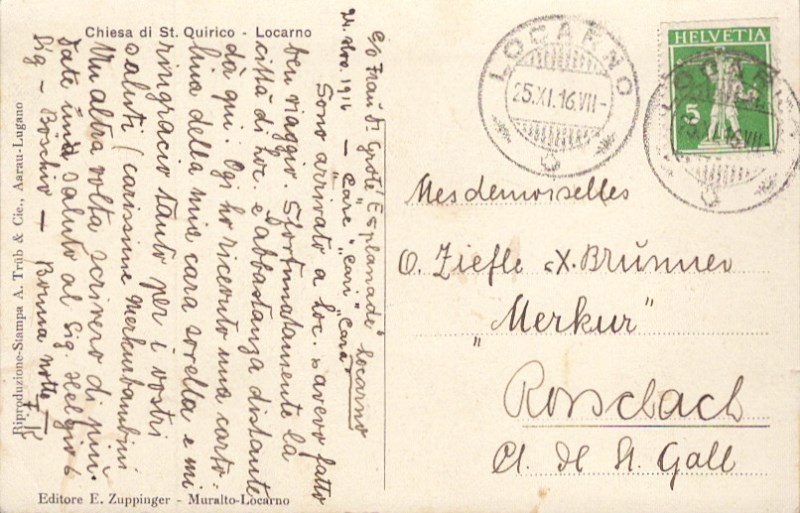 Chiesa di St. Quirico - Locarno
c/o Frau Dr Grote, Esplanade Locarno
24. Nov. 1916 — "Care" "cari" "cara"
Sono arrivato a Loc. avevo fatto
ben viaggio. Sfortunatamente la
città di Loc. e abbastanza distante
da qui. Ogi ho ricevuto una carto-
lina della mia cara sorella e mi
ringracio tanto per i vostri
saluti (carissime Merkurbambini
Un altra volta scrivero di più.
Date saluto al Sig. Helgio &
Sig - Böschio — Bonna notte
Riproduzione-Stampa A. Trüb & Cie., Aarau-Lugano
Editore E. Zuppinger - Muralto-Locarno
LOCARNO
25.XI.16.VII-
HELVETIA
5
LOCARNO
25.XI.16.VII-
Mesdemoiselles
O. Ziefle & X. Brunner
"Merkur"
Rorschach
Ct. de St. Gall